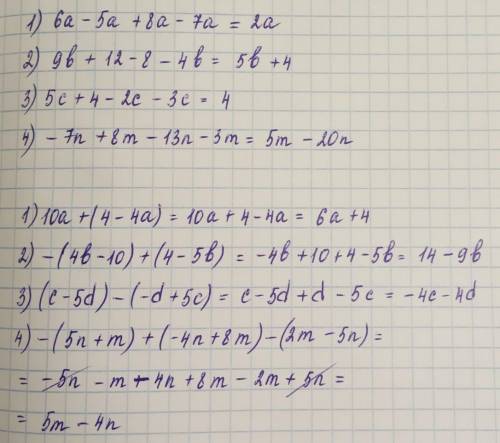 1) 6a - 5a + 8a - 7a = 2a
2) 9b + 12 - 8 - 4b = 5b + 4
3) 5c + 4 - 2c - 3c = 4
4) - 7n + 8m - 13n - 3m = 5m - 20n
1) 10a + (4 - 4a) = 10a + 4 - 4a = 6a + 4
2) - (4b - 10) + (4 - 5b) = -4b + 10 + 4 - 5b = 14 - 9b
3) (c - 5d) - (-d + 5c) = c - 5d + d - 5c = -4c - 4d
4) - (5n + m) + (-4n + 8m) - (2m - 5n) =
= -5n - m - 4n + 8m - 2m + 5n =
= 5m - 4n